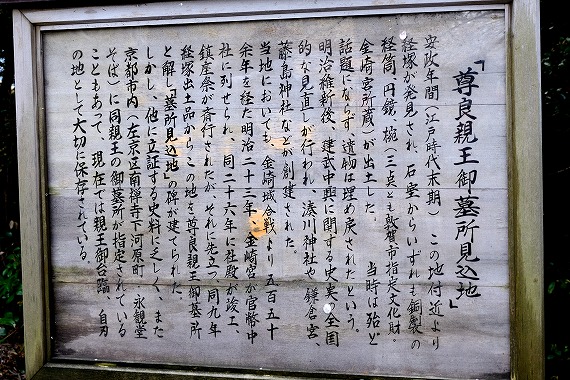 「尊良親王御墓所見込地」
安政年間（江戸時代末期）この地付近より
経塚が発見され、石室からいずれも銅製の
経筒、円鏡、椀（三点とも敦賀市指定文化財。
金崎宮所蔵）が出土した。　当時は殆ど
話題にならず、遺物は埋め戻されたという。
明治維新後、建武中興に関する史実の全国
的な見直しが行われ、湊川神社や、鎌倉宮、
藤島神社などが創建された。
当地においても、金崎城合戦より五百五十
余年を経た明治二十三年、金崎宮が官幣中
社に列せられ、同二十六年に社殿が竣工、
鎮座祭が斉行されたが、それに先立つ、同九年
経塚出土品からこの地を尊良親王御墓所
と解し「墓所見込地」の碑が建てられた。
しかし、他に立証する史料に乏しく、また
京都市内（左京区南禅寺下河原町、永観堂
そば）に同親王の御墓所が指定されている
こともあって、現在では親王御右臨、自刃
の地として大切に保存されている。